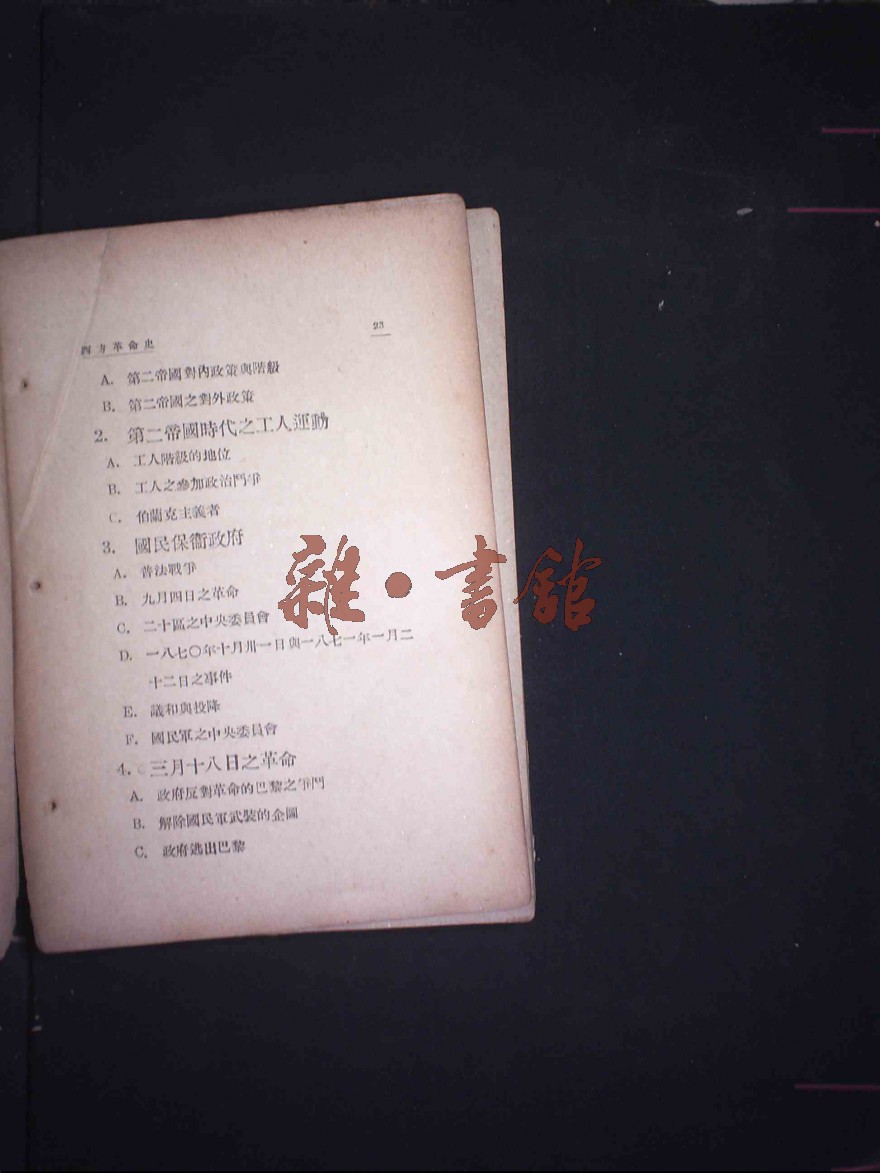 西方革命史
23
A. 第二帝國對內政策與階級
B. 第二帝國之對外政策
2. 第二帝國時代之工人運動
A. 工人階級的地位
B. 工人之參加政治鬥爭
C. 伯蘭克主義者
3. 國民保衞政府
A. 普法戰爭
B. 九月四日之革命
C. 二十區之中央委員會
D. 一八七〇年十月卅一日與一八七一年一月二
十二日之事件
E. 議和與投降
F. 國民軍之中央委員會
4. 三月十八日之革命
A. 政府反對革命的巴黎之爭鬥
B. 解除國民軍武裝的企圖
C. 政府逃出巴黎
雜·書館